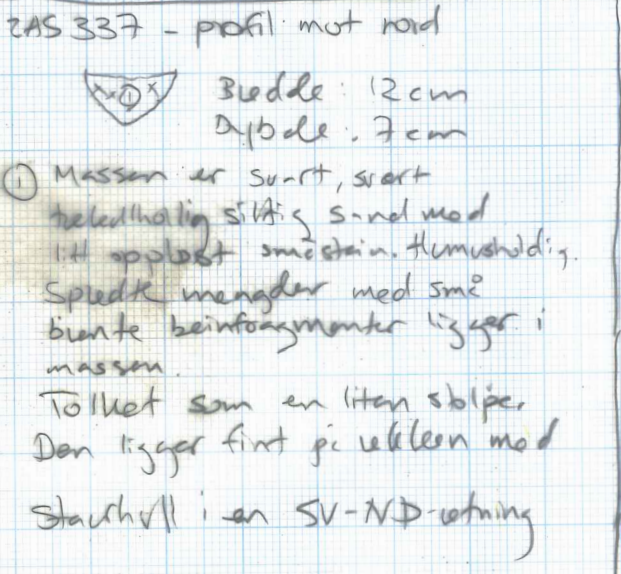 2AS 337 - profil mot nord
x x ① x
Bredde: 12 cm
Dybde: 7 cm
① Massen er svart, svært
trekullholdig siltig sand med
litt oppløst småstein. Humusholdig.
Spredte mengder med små
brente beinfragmenter ligger i
massen.
Tolket som en liten stolpe.
Den ligger fint på rekken med
staurhull i en SV-NØ-retning